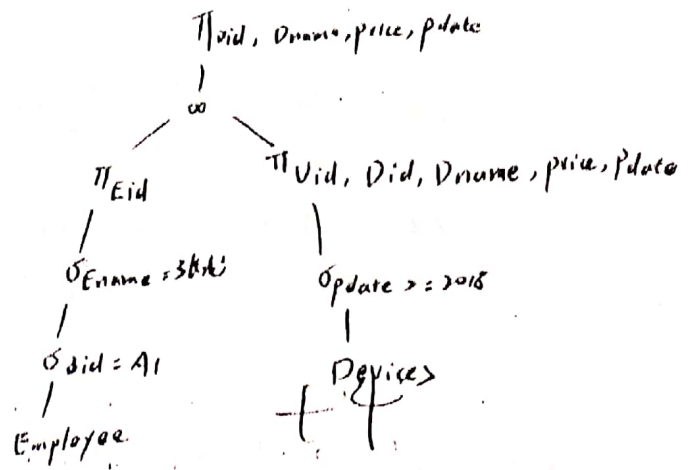 Π Did, Dname, price, pdate
∞
Π Eid
Π Uid, Did, Dname, price, Pdate
σ Ename =
σ pdate >= 2018
σ did = A1
Devices
Employee